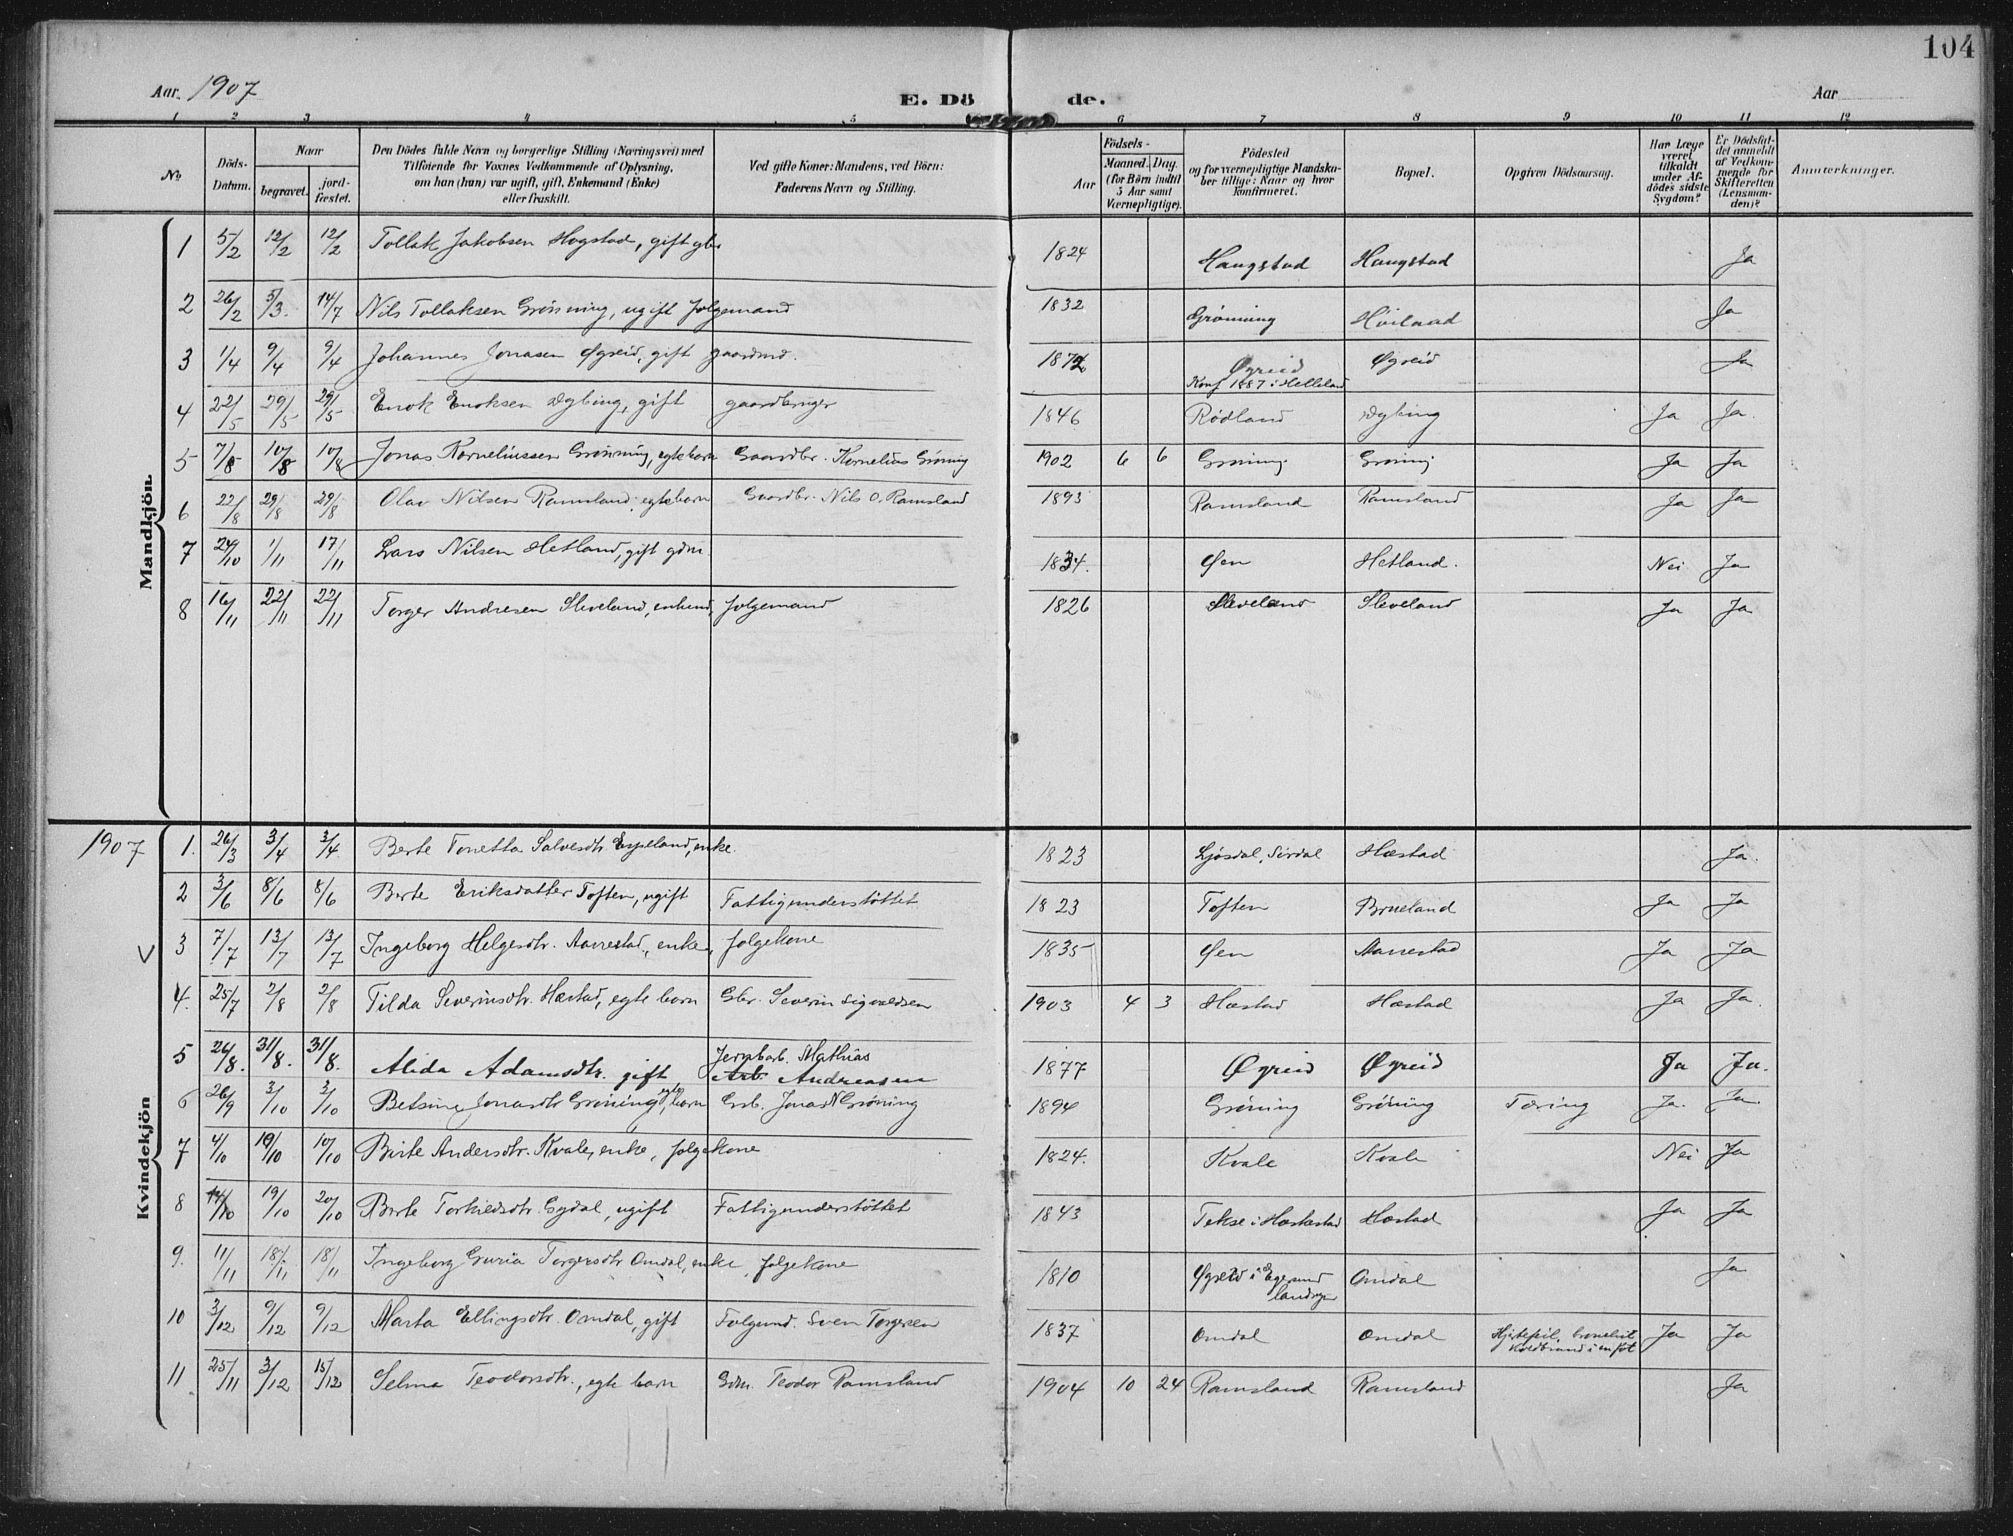 104
Aar. 1907 E. Dö de. Aar
1 2 3 4 5 6 7 8 9 10 11 12
No Döds-Datum. Naar begravet. jord-fæstet. Den Dödes fulde Navn og borgerlige Stilling (Næringsvei) med Tilföiende for Voxnes Vedkommende af Oplysning, om han (hun) var ugift, gift, Enkemand (Enke) eller fraskilt. Ved gifte Koner: Mandens, ved Börn: Faderens Navn og Stilling. Aar Födsels- Maaned. Dag. (for Börn indtil 5 Aar samt Værnepligtige). Födested og for værnepligtige Mandskaber tillige: Naar og hvor konfirmeret. Bopæl. Opgiven Dödsaarsag. Har Læge været tilkaldt under Afdödes sidste Sygdom? Er Dödsfaldet anmeldt af Vedkommende for Skifteretten (Lensmanden)? Anmærkninger.
Mandkjön.
1 5/2 12/2 12/2 Tollak Jakobsen Hogstad, gift gbr 1824 Haugstad Haugstad Ja
2 26/2 5/3. 14/7 Nils Tollaksen Grönning, ugift folgemand 1832 Grönning Höiland Ja
3 1/4 9/4 9/4 Johannes Jonasen Øgreid, gift gaardmd. 1872 Øgreid Konf 1887 i Helleland Øgreid Ja
4 22/5 29/5 29/5 Enok Enoksen Dybing, gift gaardbruger 1846 Rödland Dybing Ja Ja
5 7/8 10/8 10/8 Jonas Korneliussen Grönning, egte barn Gaardbr. Kornelius Gröning 1902 6 6 Gröning Gröning Ja Ja
6 22/8 29/8 29/8 Olav Nilsen Ramsland, egte barn Gaardbr. Nils O. Ramsland 1893 Ramsland Ramsland Ja Ja
7 24/10 1/11 17/11 Lars Nilsen Hetland, gift gdm 1834. Øen Hetland. Nei Ja
8 16/11 22/11 22/11 Torger Andresen Sleveland, enkemd, folgemand 1826 Sleveland Sleveland Ja Ja
1907
Kvindekjön
1. 26/3 3/4 3/4 Berte Tonetta Salvesdtr Espeland, enke. 1823 Ljösdal, Sirdal Hæstad Ja.
2 3/6 8/6 8/6 Berte Eriksdatter Toften, ugift Fattigunderstöttet 1823 Toften Brueland Ja Ja
3 7/7 13/7 13/7 Ingeborg Helgesdtr. Aarrestad, enke, folgekone 1835 Øen Aarrestad Ja Ja
4. 25/7 2/8 2/8 Tilda Severinsdtr. Hæstad, egte barn Gbr. Severin Sigvaldsen 1903 4 3 Hæstad Hæstad Ja Ja.
5 26/8. 31/8. 31/8. Alida Adamsdtr. gift Jernbarb. Mathias Arb. Andreasen 1877 Øgreid Øgreid Ja Ja.
6 26/9 3/10 3/10 Betsine Jonasdtr Gröning, egte barn Grb. Jonas N Gröning 1894 Gröning Gröning Tæring Ja. Ja.
7 4/10 19/10 10/10 Birte Andersdtr. Kvale, enke, folgekone 1824. Kvale Kvale Nei Ja
8 14/10 19/10 20/10 Berte Torkildsdtr. Gydal, ugift Fattigunderstöttet 1843 Tekse i Hæskestad Hæstad Ja Ja
9. 11/11 18/11 18/11 Ingeborg Guria Torgersdtr Omdal, enke, folgekone 1810 Øgreid i Egersund landsogn Omdal Ja
10 3/12 9/12 9/12 Marta Ellingsdtr. Omdal, gift Folgmd. Sven Torgersen 1837 Omdal Omdal Hjertefeil, bronchit Koldbrand i en fot Ja Ja
11 25/11 3/12 15/12 Selma Teodorsdtr., egte barn Gdm. Teodor Ramsland 1904 10 24 Ramsland Ramsland Ja